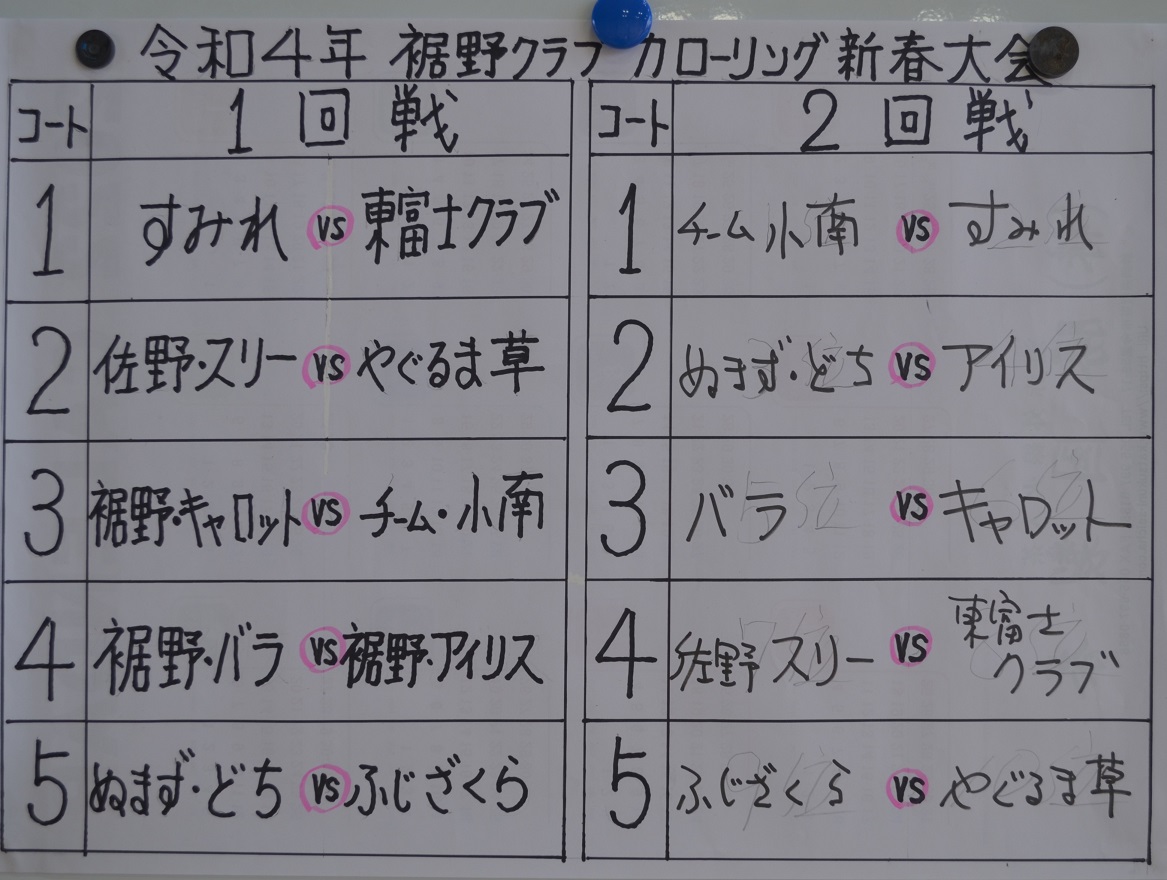 令和4年 裾野クラブ カローリング新春大会
コート 1回戦
1 すみれ vs 東富士クラブ
2 佐野・スリー vs やぐるま草
3 裾野・キャロット vs チーム・小南
4 裾野・バラ vs 裾野・アイリス
5 ぬまず・どち vs ふじざくら
コート 2回戦
1 チーム小南 vs すみれ
2 ぬまず・どち vs アイリス
3 バラ vs キャロット
4 佐野スリー vs 東富士
クラブ
5 ふじざくら vs やぐるま草